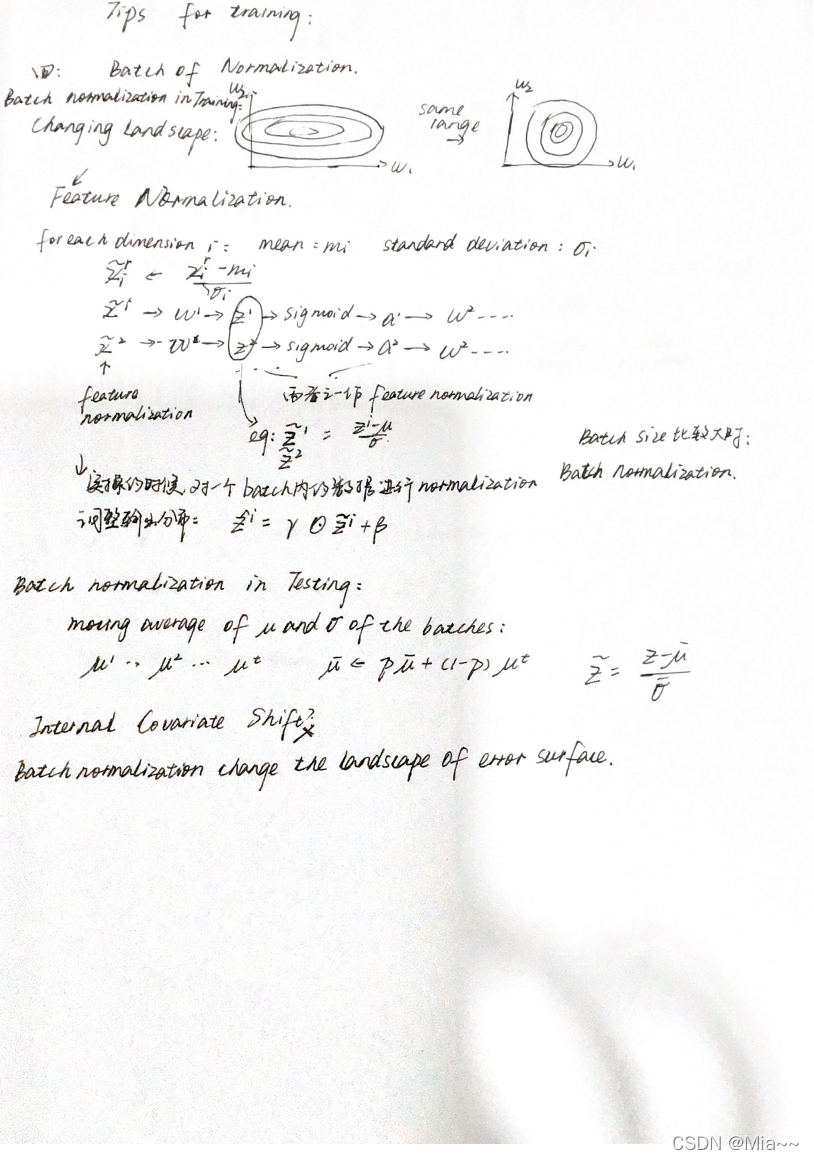 Tips for training:
四: Batch of Normalization.
Batch normalization in Training:
Changing Landscape: w₂ w₁ same range → w₂ w₁
Feature Normalization.
for each dimension i: mean = mi standard deviation: σi
x̃ʳᵢ ← (xʳᵢ - mi) / σi
x̃¹ → W¹ → z¹ → sigmoid → a¹ → W² ----
x̃² → W¹ → z² → sigmoid → a² → W² ----
↑
feature normalization
两者之一作 feature normalization
eg: z̃¹ = (z¹-μ) / σ
z̃²
Batch size 比较大时:
Batch Normalization.
↓ 实操的时候,对一个batch内的数据进行normalization
调整输出分布: ẑⁱ = γ ⊙ z̃ⁱ + β
Batch normalization in Testing:
moving average of μ and σ of the batches:
μ¹ ·· μ² ··· μᵗ μ̄ ← p μ̄ + (1-p) μᵗ z̃ = (z-μ̄) / σ̄
Internal Covariate Shift? ×
Batch normalization change the landscape of error surface.
CSDN @Mia~~